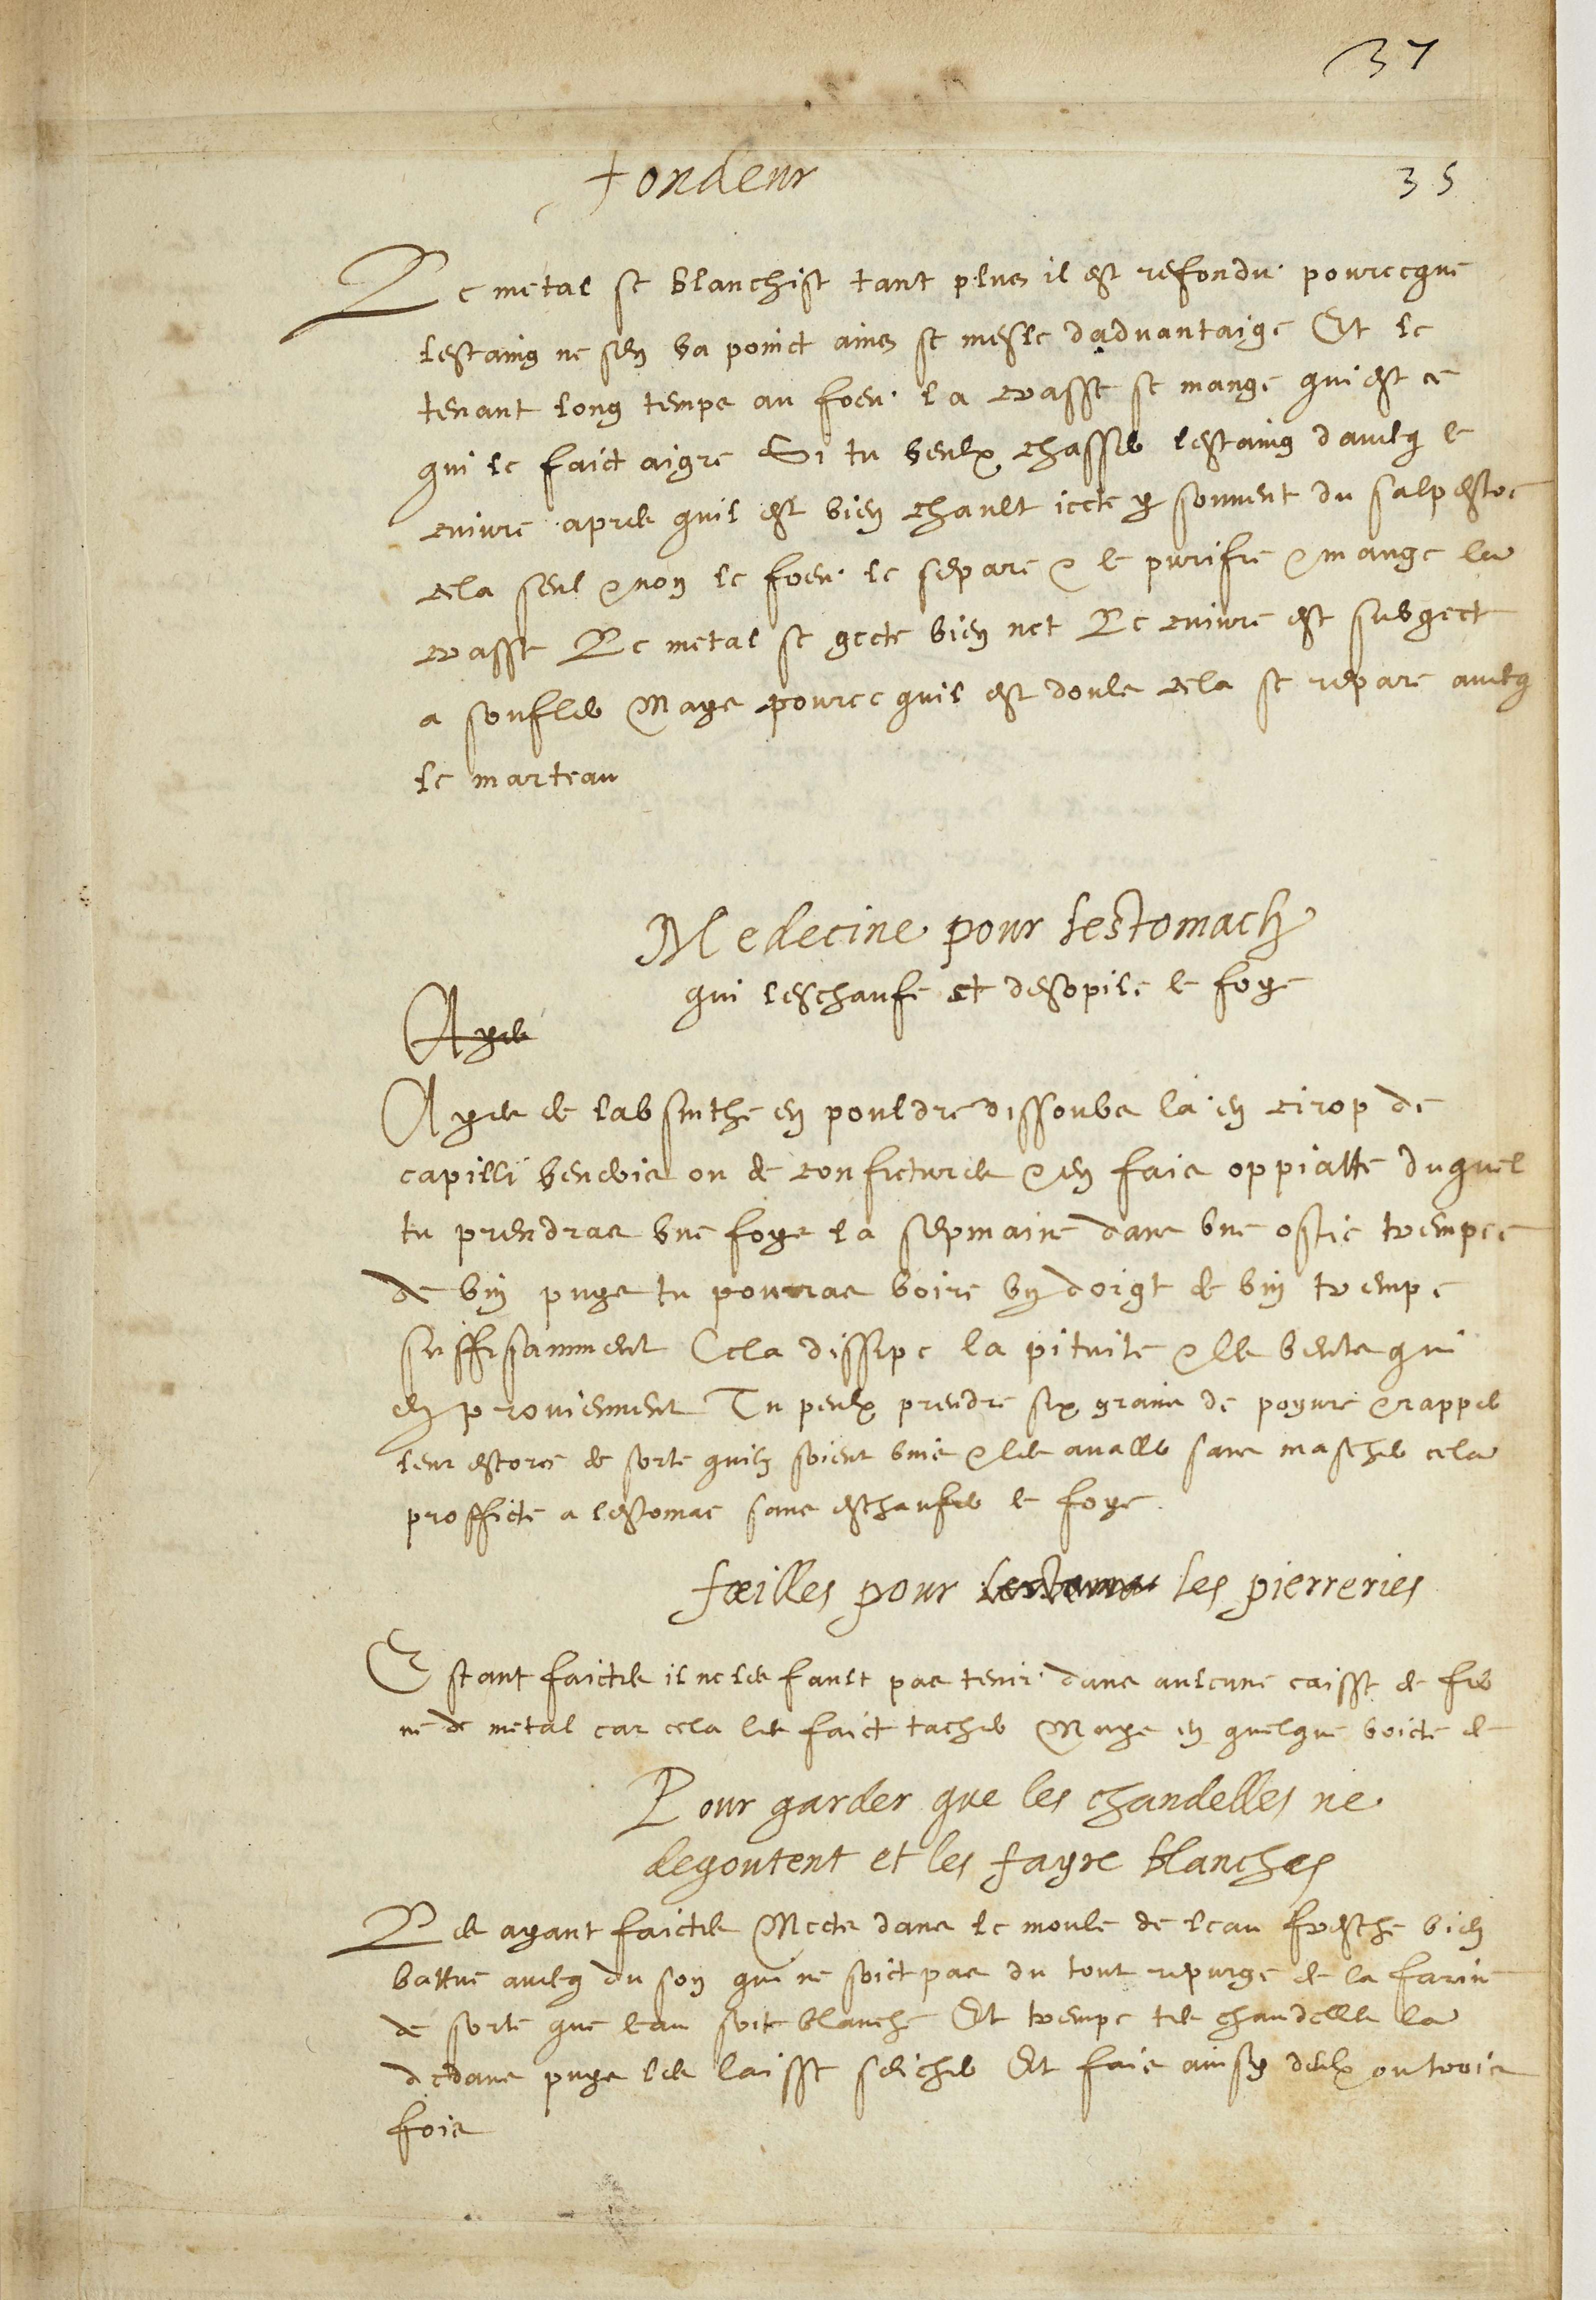 37
fondeur
35
Le metal se blanchist tant plus il est refondu pourceque
lestaing ne sen va poinct ains se mesle dadvantaige Et le
tenant long temps au foeu la crasse se mange qui est ce
qui le faict aigre Si tu veulx chasser lestaing davecq le
cuivre apres quil est bien chault jecte y souvent du salpestre
cela seul & non le foeu le separe & le purifie & mange la
crasse Le metal se gecte bien net Le cuivre est subgect
a soufler Mays pource quil est doulx cela se repare avecq
le marteau
Medecine pour lestomach
qui leschaufe et desopile le foye
Ayes
Ayes de labsinthe en pouldre dissouls la en cirop de
capilli veneris ou de confictures & en fais oppiatte duquel
tu prendras une foys la sepmaine dans une ostie trempee
de vin puys tu pourras boire un doigt de vin trempe
suffisamment Cela dissipe la pituite & les vents qui
en proviennent Tu peulx prendre six grains de poyvre & rapper
leur escorce de sorte quilz soient unis & les avaller sans mascher cela
profficte a lestomac sans eschaufer le foye
foeilles pour lestomac les pierreries
Estant faictes il ne les fault pas tenir dans aulcune caisse de fer
ne de metal car cela les faict tacher Mays en quelque boicte de
Pour garder que les chandelles ne
degoutent et les fayre blanches
Les ayant faictes Mects dans le moule de leau fresche bien
battue avecq du son qui ne soict pas du tout repurge de la farine
de sorte que leau soit blanche Et trempe tes chandelles la
dedans puys les laisse seicher Et fais ainsy deulx ou trois
fois